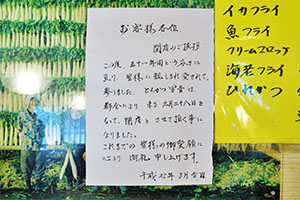 お客様各位
閉店のご挨拶
この度、五十一年間と今日まで
亘り、皆様に親しまれ愛されて
参りました、とんかつ
都合により、来る 九月二十八日を
もって、閉店とさせて頂く事に
なりました。
これまでの皆様の御愛顧に
心より御礼申し上げます。
平成 年 月 日
イカフライ
魚フライ
クリームコロッケ
海老フライ
ひれかつ